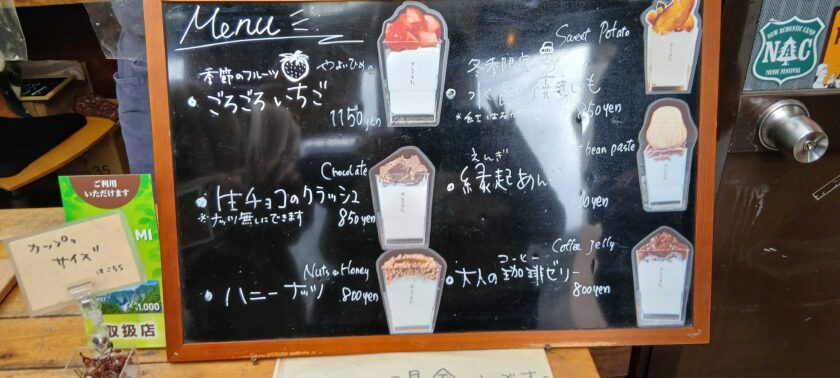 Menu
季節のフルーツ
やよいひめの
・ごろごろ いちご
1150yen
Chocolate
・生チョコのクラッシュ
※ナッツ無しにできます 850yen
Nuts & Honey
・ハニーナッツ
800yen
Sweet Potato
冬季限定
焼きいも
850yen
bean paste
えんぎ
・縁起あん
Coffee Jelly
コーヒー
・大人の珈琲ゼリー
800yen
ご利用
いただけます
MI
1,000
取扱店
カップの
サイズ
はこちら
35
NEW ACOUSTIC CAMP
NAC
MUSIC FESTIVAL